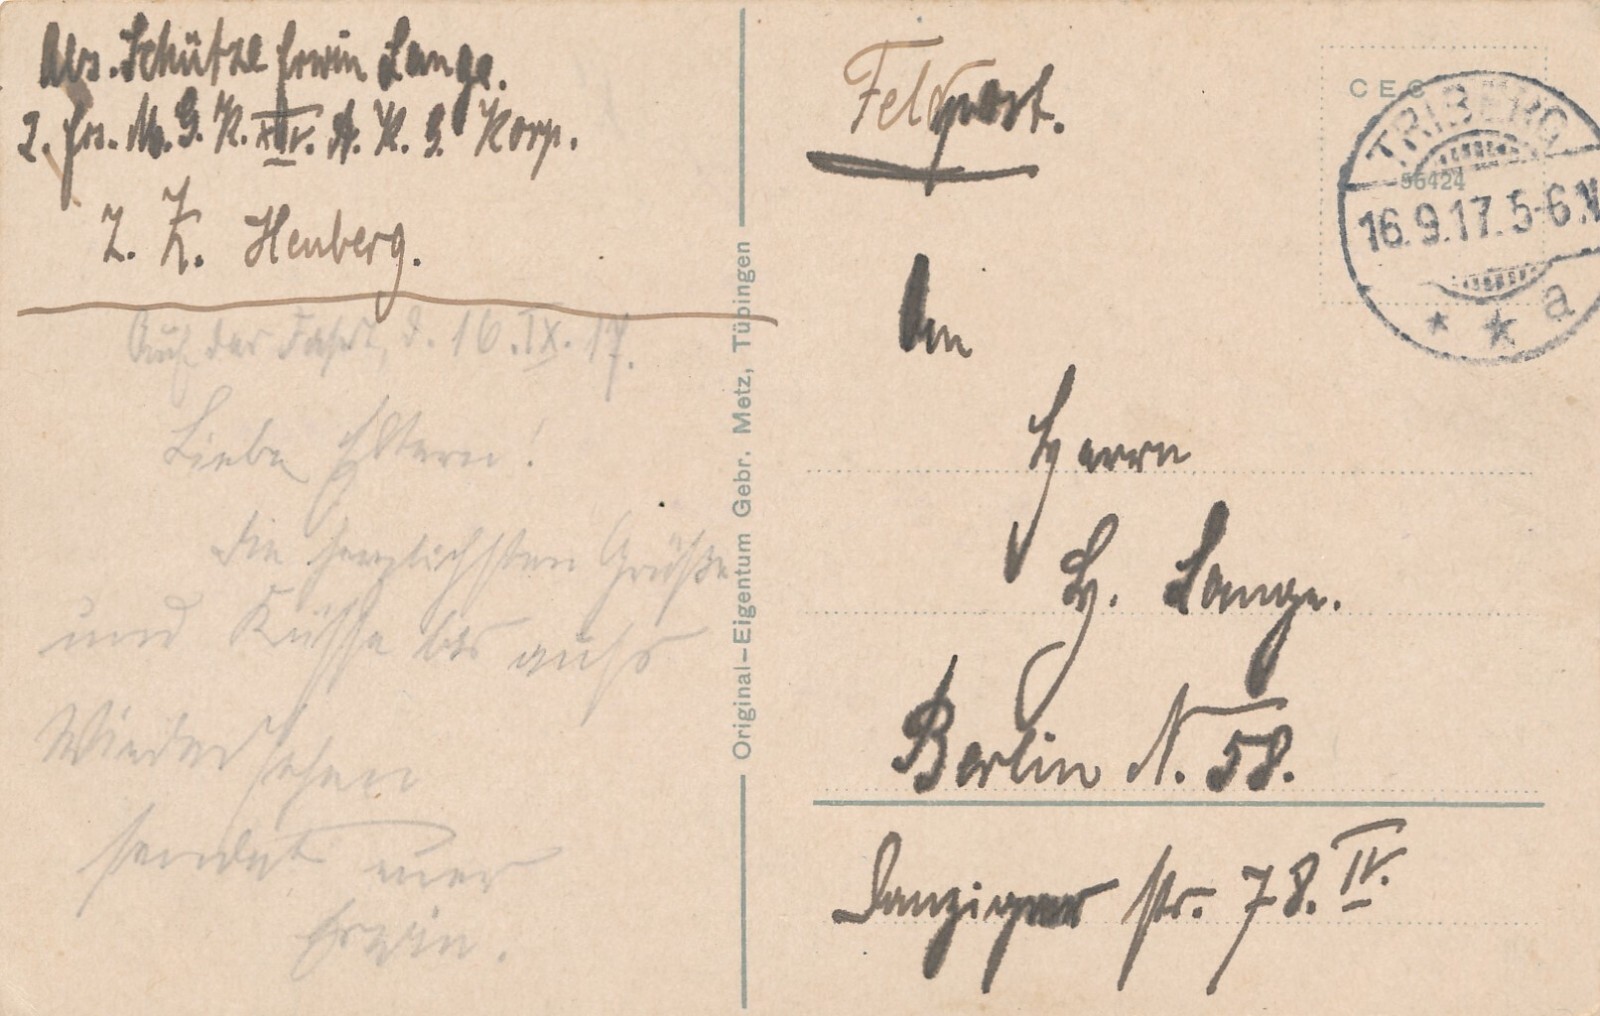 Abs. Schütze Erwin Lange.
2. Ers. M. G. K. XIV. A. K. G. Korp.
Z. Z. Heuberg.
Auf der Fahrt, d. 16.IX.17.
Liebe Eltern!
Die herzlichsten Grüße
und Küsse bis aufs
Wiedersehen
sendet euer
Erwin.
Original-Eigentum Gebr. Metz, Tübingen
Feldpost.
CEG
56424
TRIBERG
16.9.17.5-6.N
* * a
An
Herrn
H. Lange.
Berlin N. 58.
Danziger Str. 78. IV.